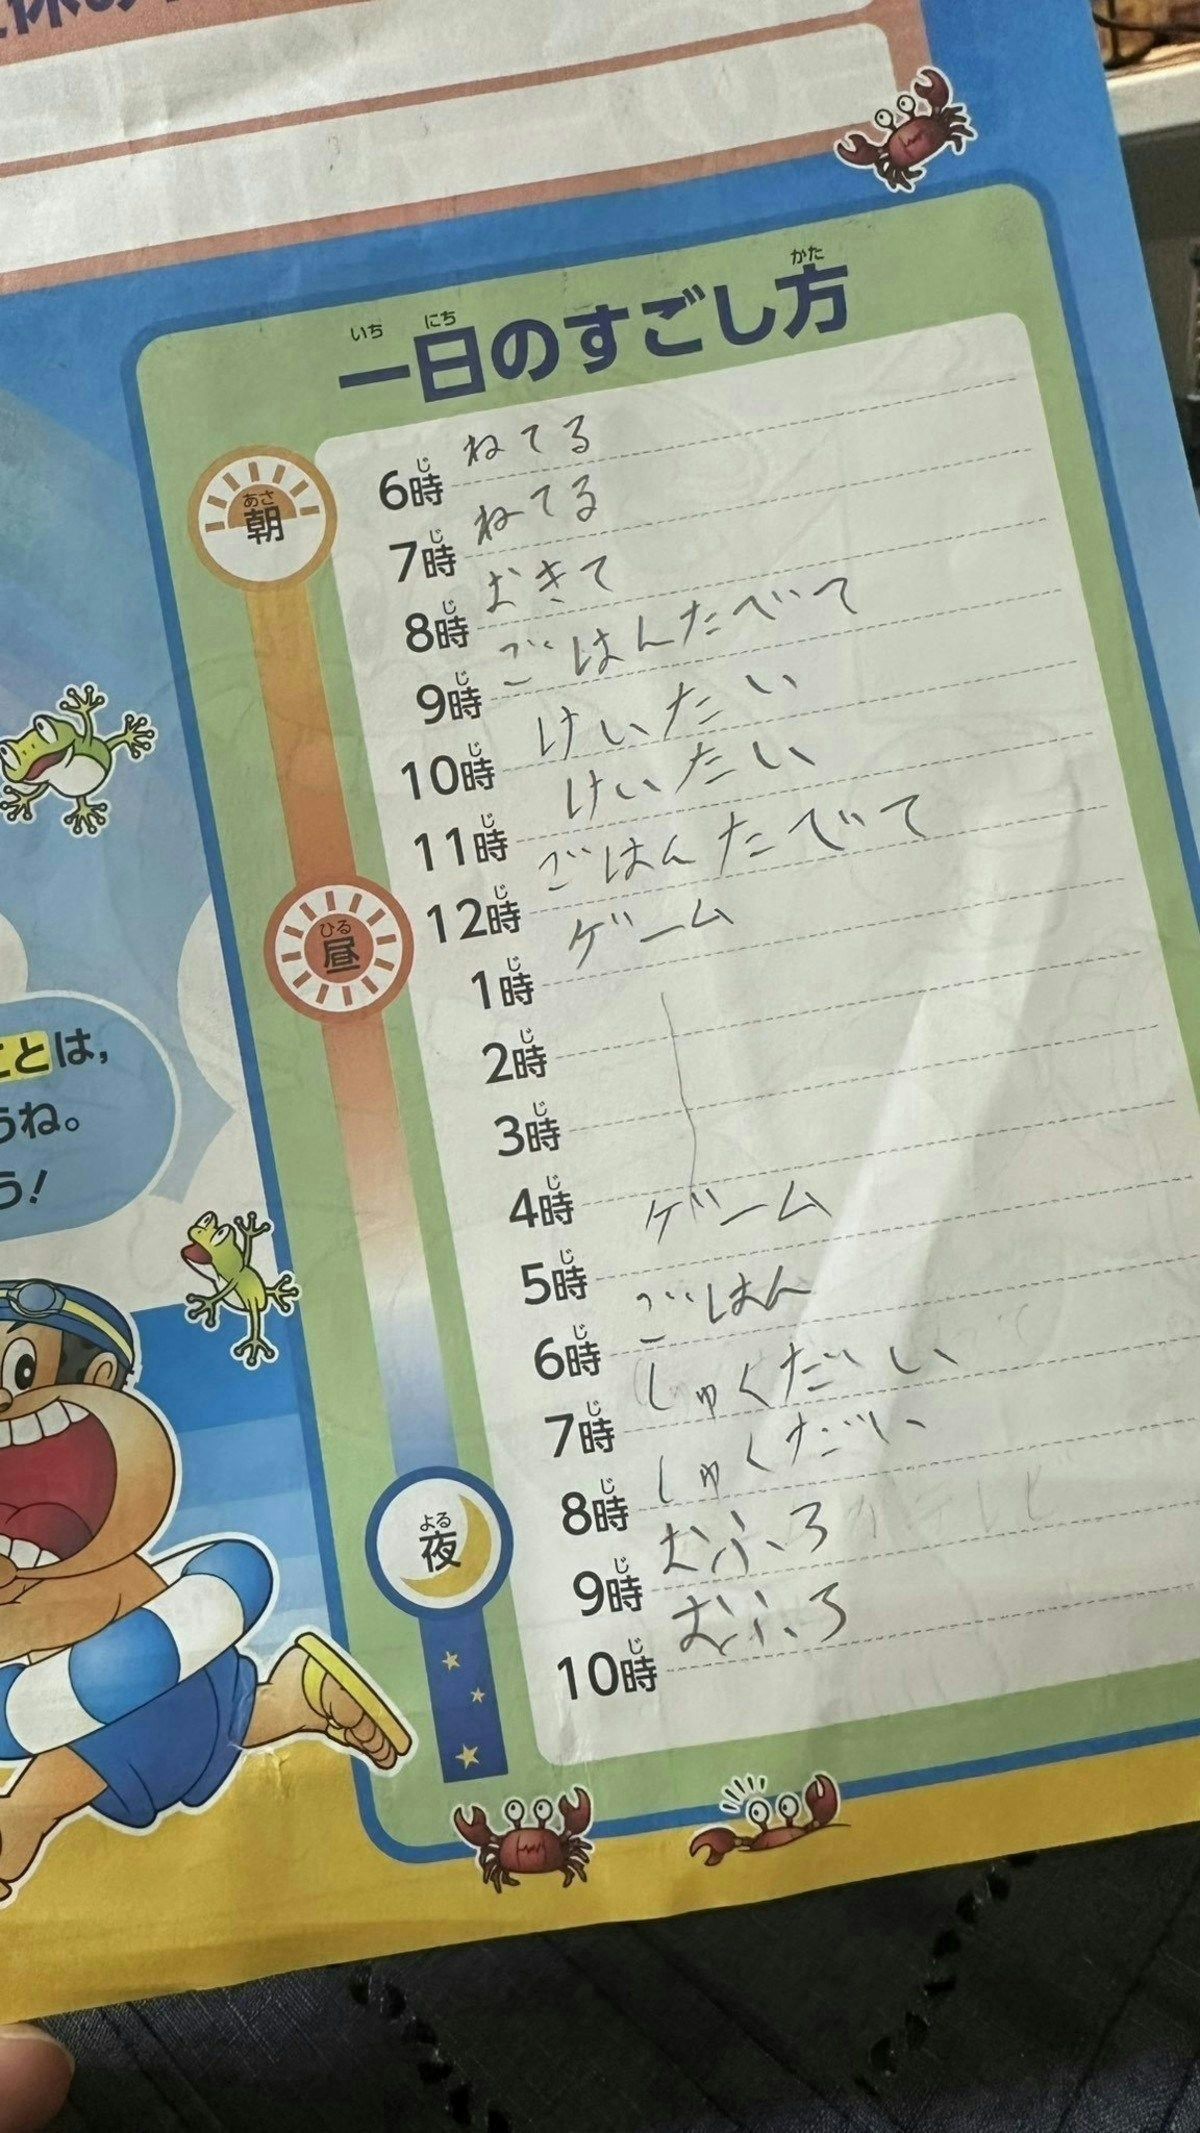 一日のすごし方
いち にち かた
朝
あさ
6時 ねてる
7時 ねてる
8時 おきて
9時 ごはんたべて
10時 けいたい
11時 けいたい
12時 ごはんたべて
昼
ひる
1時 ゲーム
2時
3時
4時
5時 ゲーム
6時 ごはん
7時 しゅくだい
8時 しゅくだい
夜
よる
9時 おふろ
10時 おふろ
ことは、
うね。
う!